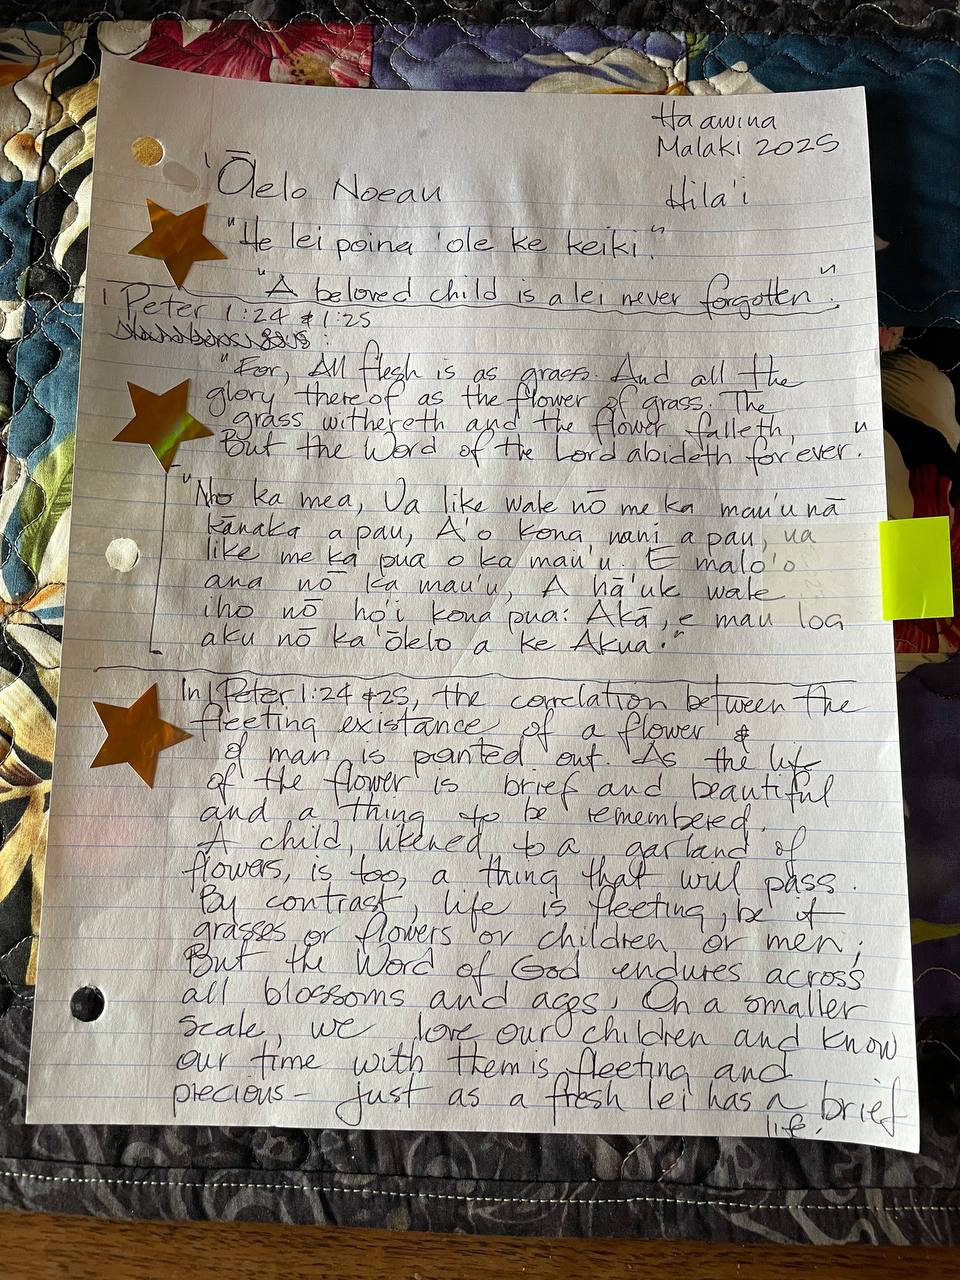 Ha awina
Malaki 2025
'Ōlelo Noeau
Hila'i
"He lei poina 'ole ke keiki."
"A beloved child is a lei never forgotten."
1 Peter 1:24 & 1:25
"For, All flesh is as grass. And all the
glory thereof as the flower of grass. The
grass withereth and the flower falleth,
But the Word of the Lord abideth for ever."
"No ka mea, Ua like wale nō me ka mau'u nā
kānaka a pau, A'o kona nani a pau, ua
like me ka pua o ka mau'u. E malo'o
ana nō ka mau'u, A hā'uk wale
iho nō ho'i kona pua: Akā, e mau loa
aku nō ka 'ōlelo a ke Akua."
In 1 Peter 1:24 & 25, the correlation between the
fleeting existance of a flower &
of man is pointed out. As the life
of the flower is brief and beautiful
and a thing to be remembered.
A child, likened to a garland of
flowers, is too, a thing that will pass.
By contrast, life is fleeting, be it
grasses or flowers or children or men;
But the Word of God endures across
all blossoms and ages. On a smaller
scale, we love our children and know
our time with them is fleeting and
precious - just as a fresh lei has a brief
life.